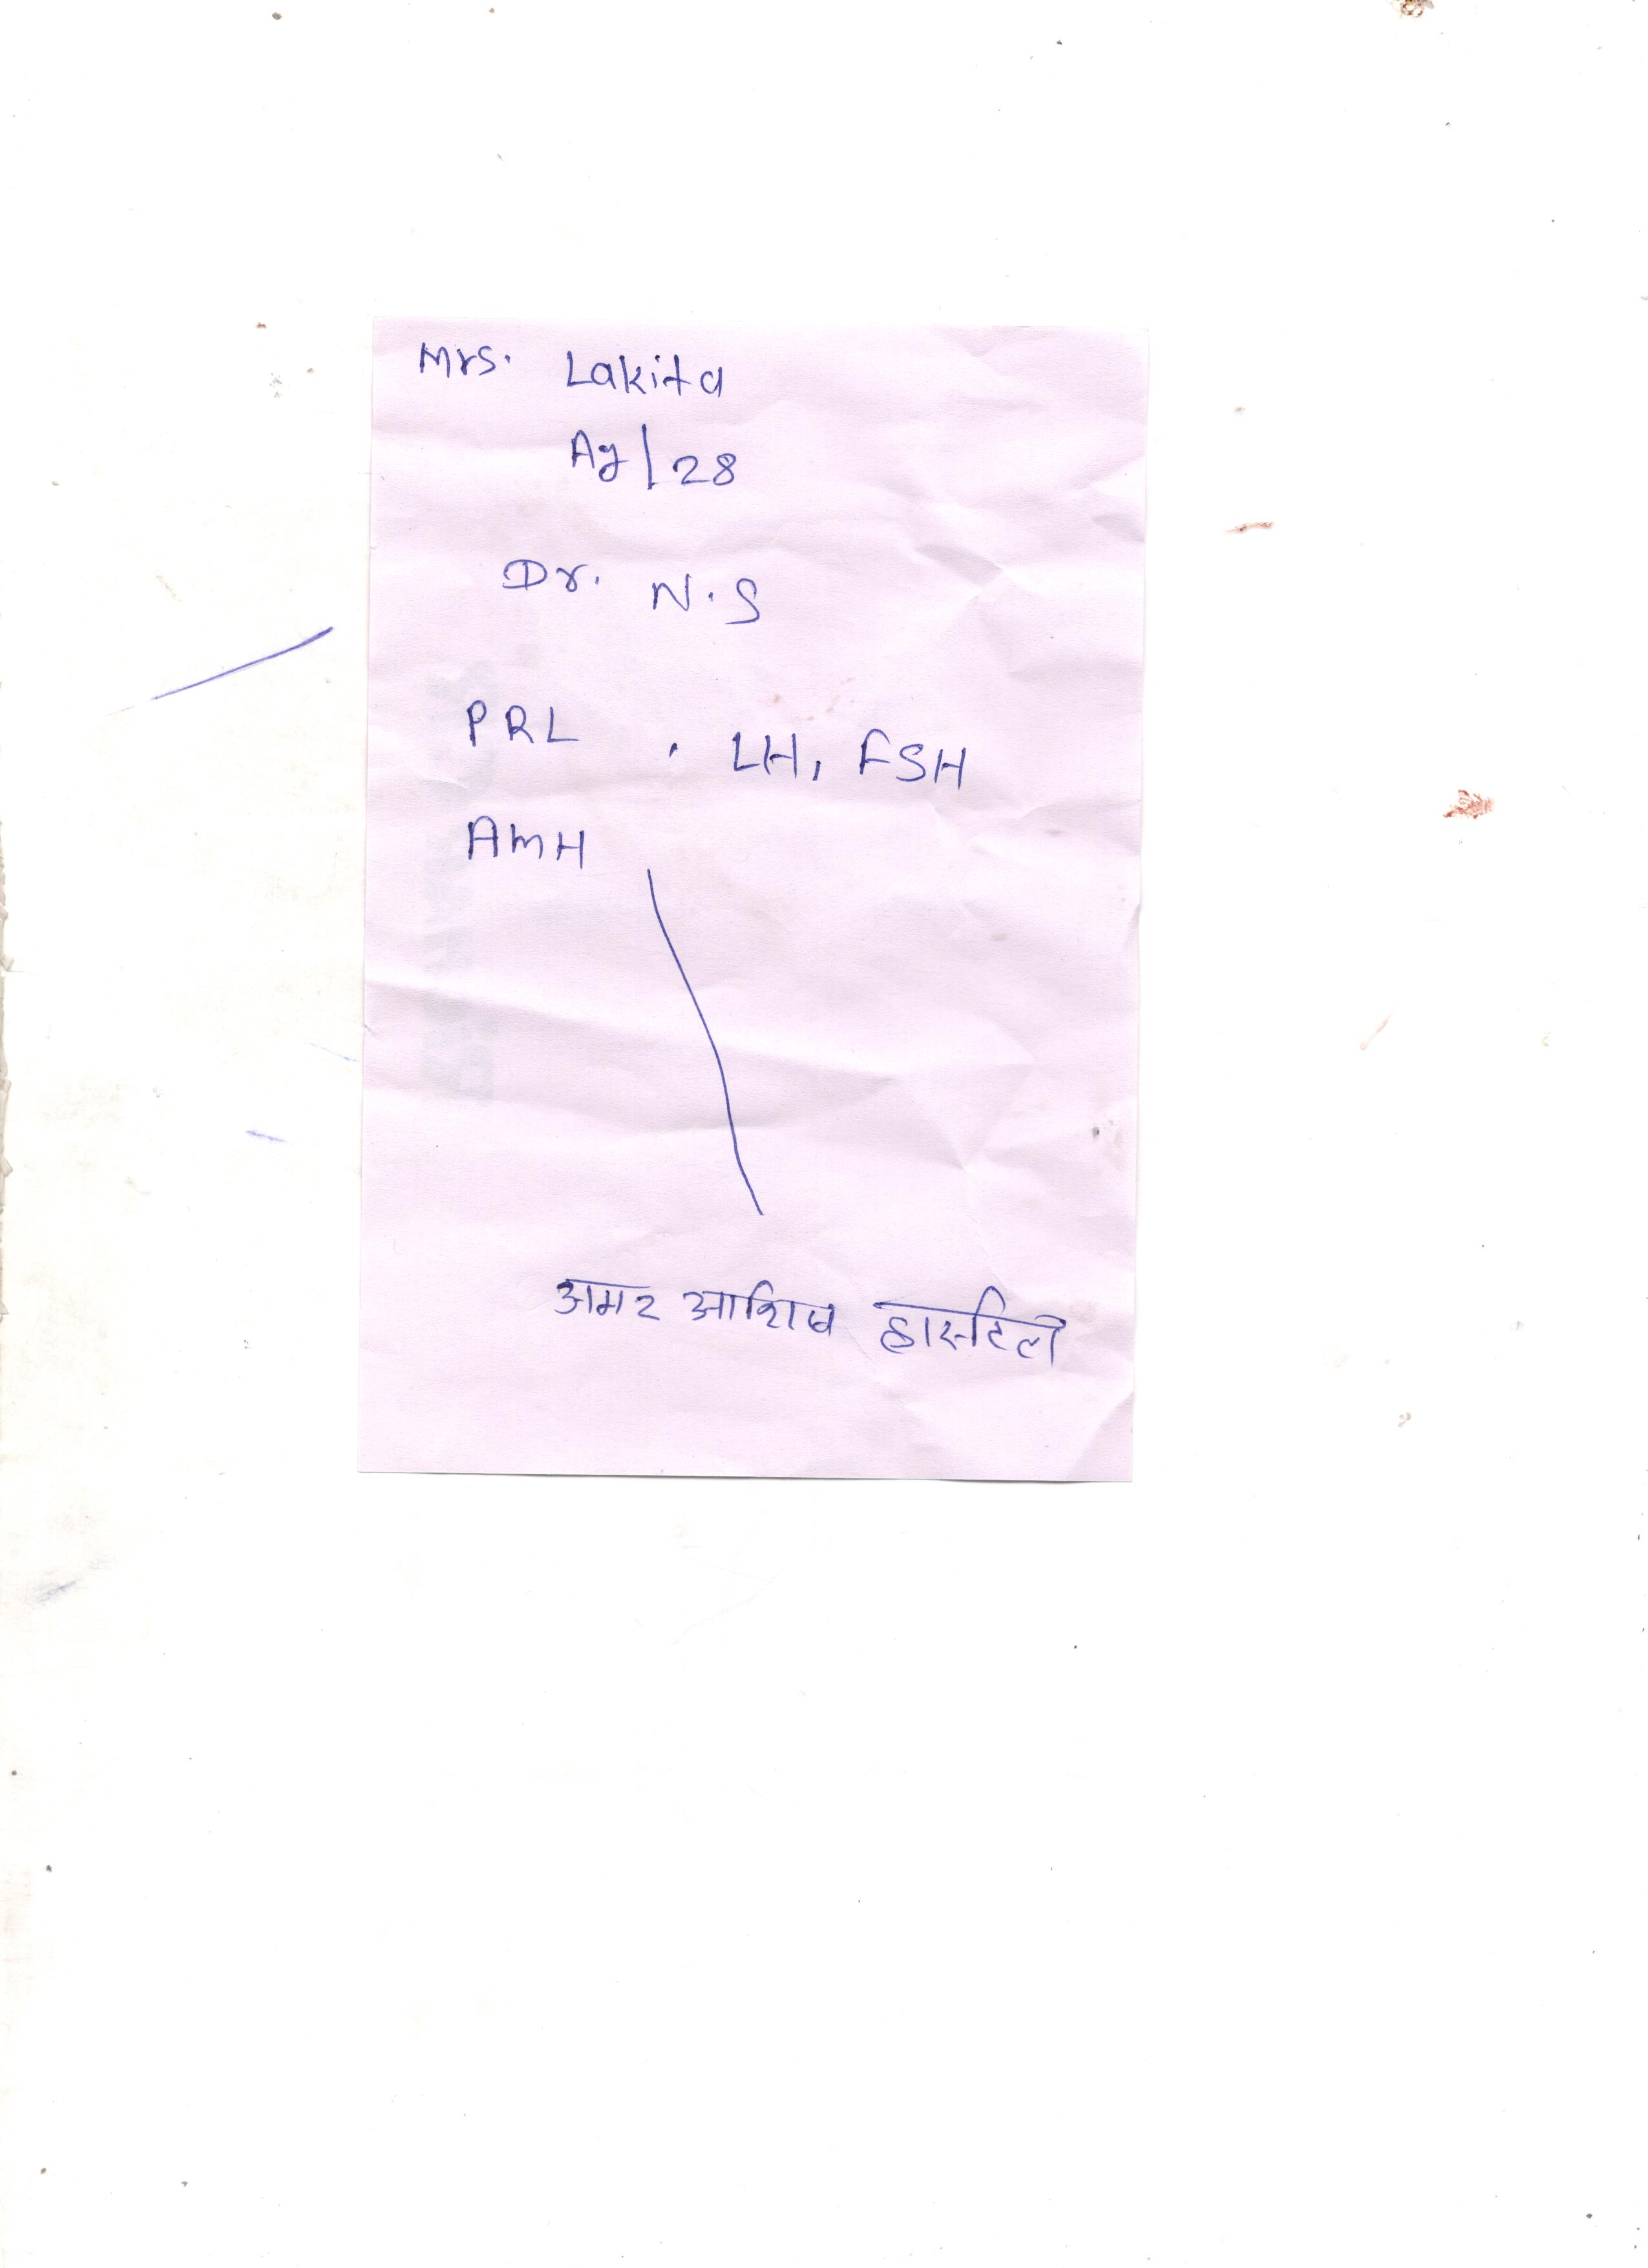 Mrs. Lakita
Ag/28
Dr. N.S
PRL , LH, FSH
AMH
अमर आशिष हास्टिल